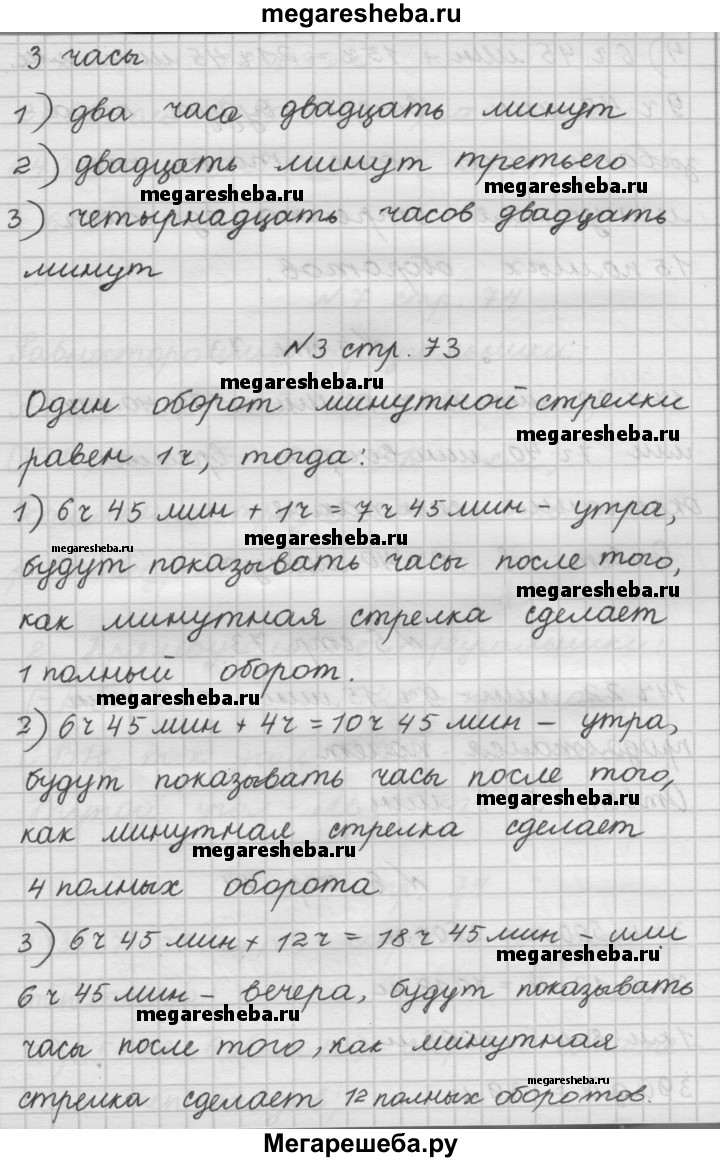 megaresheba.ru
3 часы
1) два часа двадцать минут
2) двадцать минут третьего
megaresheba.ru
3) четырнадцать часов двадцать
минут
№3 стр. 73
megaresheba.ru
Один оборот минутной стрелки
megaresheba.ru
равен 1ч, тогда:
1) 6ч 45 мин + 1ч = 7ч 45 мин - утра,
megaresheba.ru
megaresheba.ru
будут показывать часы после того,
megaresheba.ru
как минутная стрелка сделает
1 полный оборот.
megaresheba.ru
2) 6ч 45 мин + 4ч = 10ч 45 мин - утра,
будут показывать часы после того,
megaresheba.ru
как минутная стрелка сделает
megaresheba.ru
4 полных оборота
3) 6ч 45 мин + 12ч = 18ч 45 мин - или
6ч 45 мин - вечера, будут показывать
megaresheba.ru
часы после того, как минутная
megaresheba.ru
стрелка сделает 12 полных оборотов.
Мегарешеба.ру